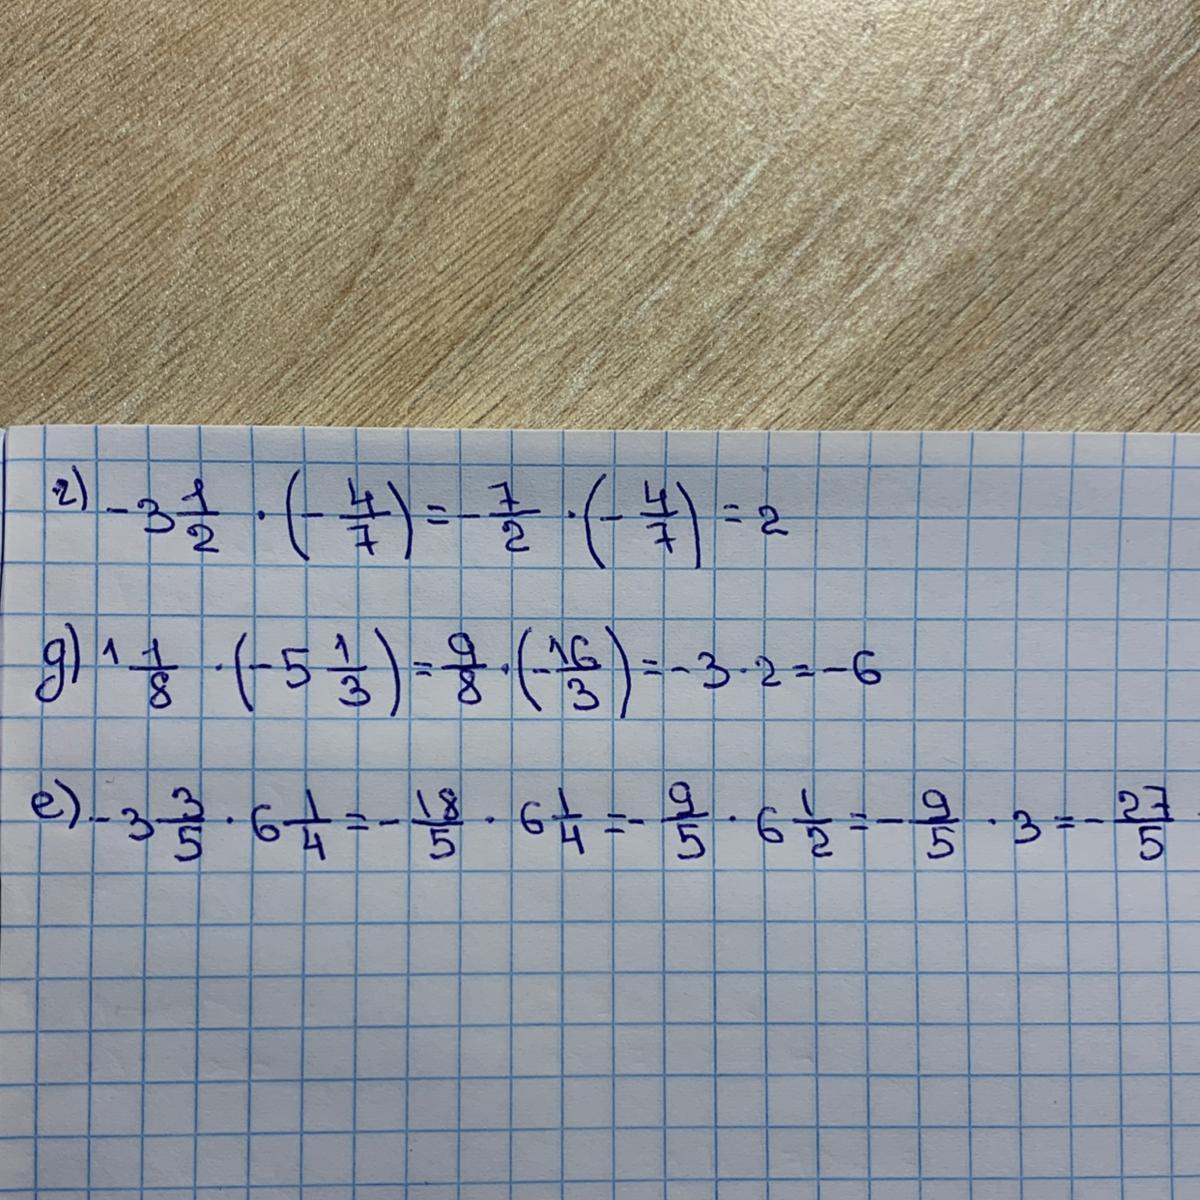 г) -3 1/2 · (- 4/7) = - 7/2 · (- 4/7) = 2
д) 1 1/8 · (-5 1/3) = 9/8 · (- 16/3) = -3 · 2 = -6
е) -3 3/5 · 6 1/4 = - 18/5 · 6 1/4 = - 9/5 · 6 1/2 = - 9/5 · 3 = - 27/5